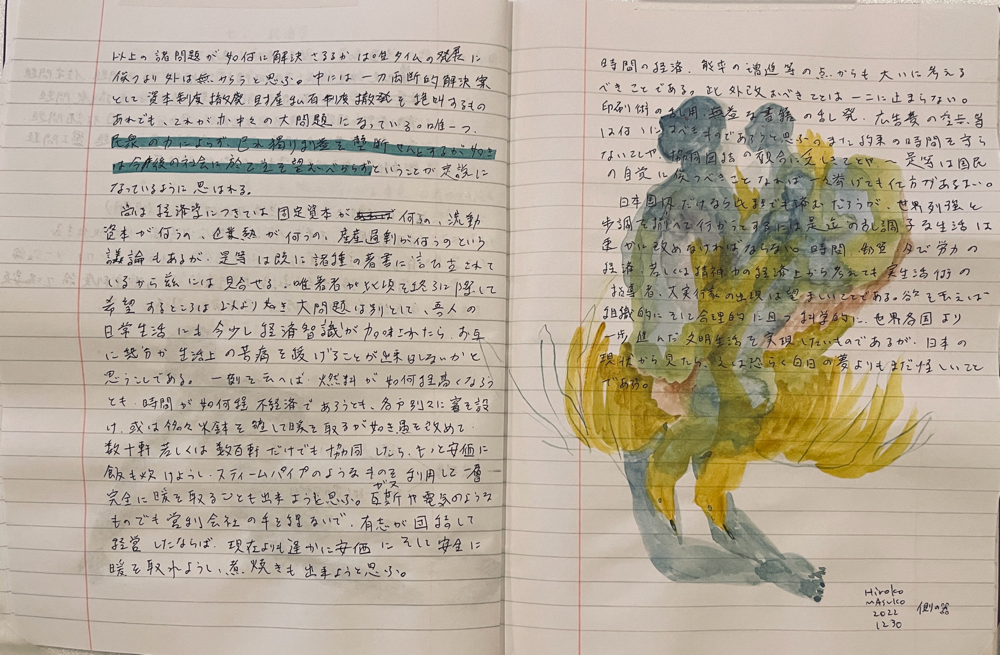 以上の諸問題が如何に解決さるるかは唯タイムの発展に
俟つより外は無からうと思ふ。中には一刀両断的解決案
として資本制度撤廃、財産私有制度撤廃を絶叫するもの
あれども、これが亦一つの大問題になっている。唯一つ、
民衆の力によらず己れ独り利益を壟断せんとするが如き
は今後の社会に於て生を望むべからずということが実説に
なっているように思はれる。
尚ほ経済学については固定資本が何うの、流動
資本が何うの、企業熱が何うの、生産過剰が何うのという
議論もあるが、是等は既に諸種の著書に言い立されて
いるから茲には見合せる。唯著者が此項を終るに際して
希望するところは以上より為き大問題は別として、吾人の
日常生活にも今少し経済智識が加味されたら、お互
に幾分か生活上の苦痛を緩げることが出来はしないかと
思うことである。一例を云へば、燃料が如何程高くなろう
とも、時間が如何程不経済であろうとも、各戸別々に竈を設
け、或は個々火鉢を擁して暖を取るが如き風を改めて
数十軒若しくは数百軒だけでも協同したら、もっと安価に
飯も炊けようし、スティームパイプのようなものを利用して一層
完全に暖を取ることも出来ようと思ふ。瓦斯や電気のような
ガス
ものでも営利会社の手を経ないで、有志が団結して
経営したならば、現在よりも遥かに安価にそして安全に
暖を取れようし、煮、焼きも出来ようと思ふ。
時間の経済、能率の増進等の点からも大いに考える
べきことである。此外改むべきことは一二に止まらない。
印刷術の利用、無益な書籍の出し発、広告費の空費等
は何とかすべきものであらうと思ふのまた約束の時間を守ら
ないことや、
の自覚に俟つべきことなれば一々挙げても仕方があるまい。
日本国内だけなら此まで事済むだろうが、世界列強と
歩調を揃へて行かうとするには是迄の乱調子な生活は
速かに改めなければならない。時間、物質、及び労力の
経済、若しくは精神力の経済上から考えても実生活の
指導者、大実行家の出現は望ましいことである。欲を云えば
組織的にそして合理的に且つ科学的に、世界各国より
一歩進んだ文明生活を実現したいものであるが、日本の
現状から見たら、之は恐らく白日の夢よりもまだ怪しいこと
であろう。
Hiroko
mAsuko
2022
1230
側の器